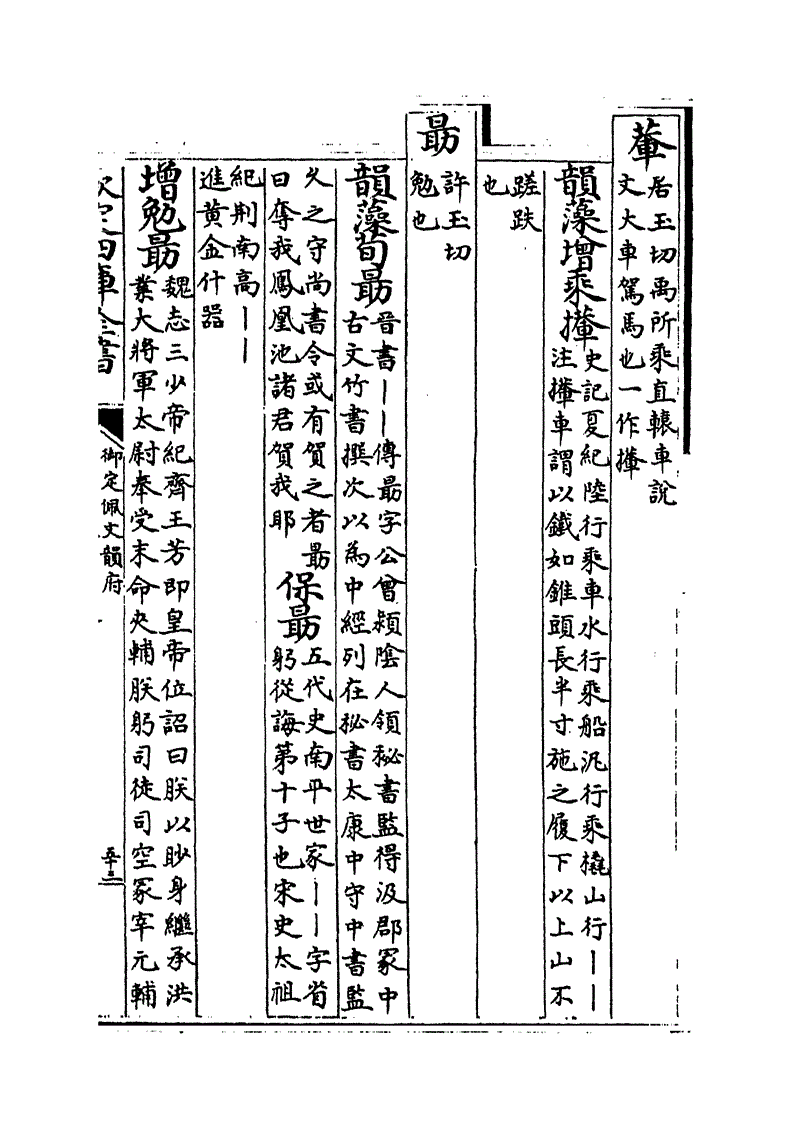 輂居玉切禹所乘直轅車說
文大車駕馬也一作㩀
韻藻增乘㩀史記夏紀陸行乘車水行乘船汎行乘橇山行〡〡
注㩀車謂以鐵如錐頭長半寸施之履下以上山不
蹉跌
也
勗許玉切
勉也
韻藻荀勗晉書〡〡傳勗字公曾潁陰人領秘書監得汲郡冢中
古文竹書撰次以為中經列在秘書太康中守中書監
久之守尚書令或有賀之者勗
曰奪我鳳凰池諸君賀我耶
保勗五代史南平世家〡〡字省
躬從誨第十子也宋史太祖
紀荆南高〡〡
進黄金什器
增勉勗魏志三少帝紀齊王芳即皇帝位詔曰朕以眇身繼承洪
業大將軍太尉奉受末命夾輔朕躬司徒司空冢宰元輔
欽定四庫全書
御定佩文韻府
五十三